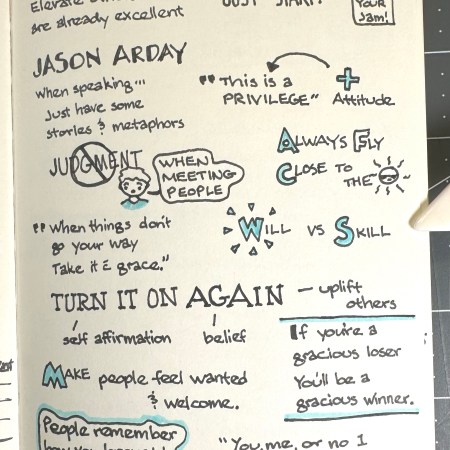 are already excellent
JUST START!
YOUR
Jam!
JASON ARDAY
when speaking...
Just have some
stories & metaphors
"This is a
PRIVILEGE"
+
Attitude
ALWAYS FLY
CLOSE TO
THE
JUDGMENT
WHEN
MEETING
PEOPLE
"When things don't
go your way
Take it & grace."
WILL VS SKILL
TURN IT ON AGAIN — uplift
others
self affirmation
belief
MAKE people feel wanted
& welcome.
If you're a
gracious loser
You'll be a
gracious winner.
People remember
"You, me, or no 1